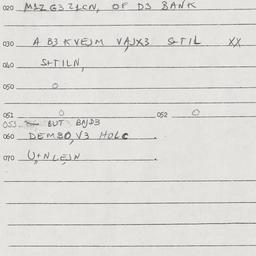 020 M1Z G3 Z1CN, OF D3 BANK
030 A B3 KVEJM VAJX3 STIL XX
040 STILN,
050 O
051 O 052 O
053 BUT BAJD3
060 DEMBO, V3 HOLC
070 U+N LEJN